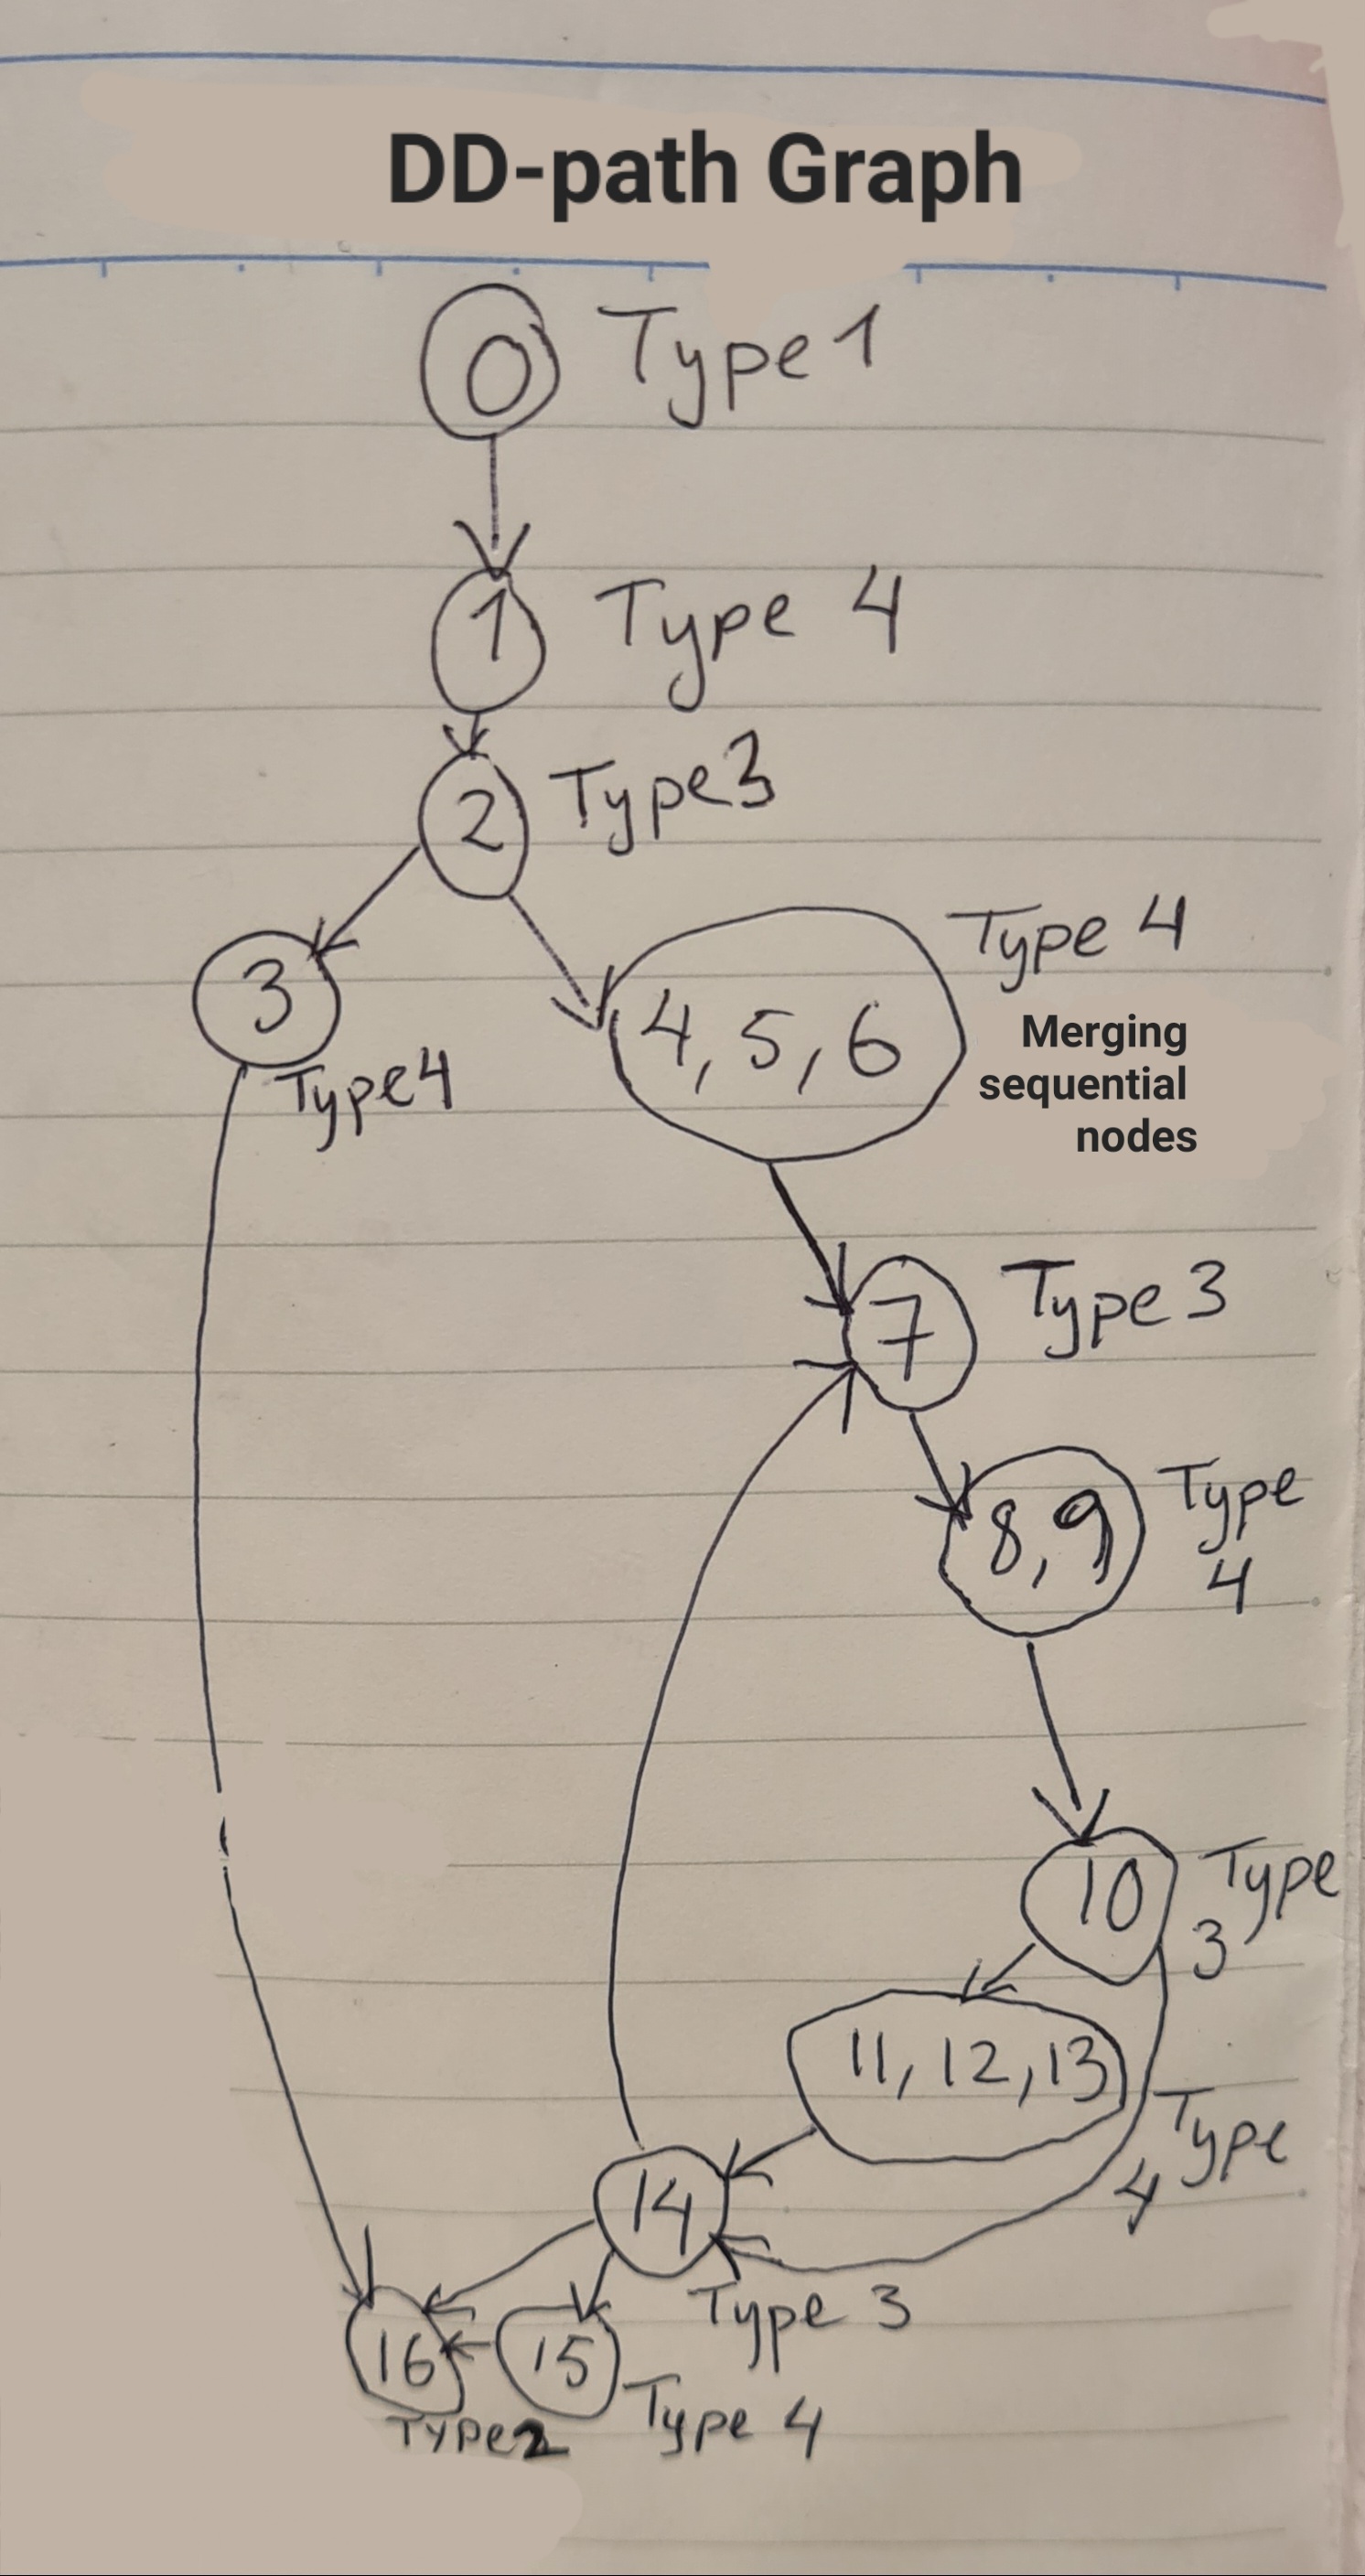 DD-path Graph
0 Type 1
1 Type 4
2 Type 3
3
Type 4
4, 5, 6
Type 4
Merging
sequential
nodes
7 Type 3
8, 9 Type
4
10 Type
3
11, 12, 13
Type
4
14
Type 3
16
Type 2
15
Type 4